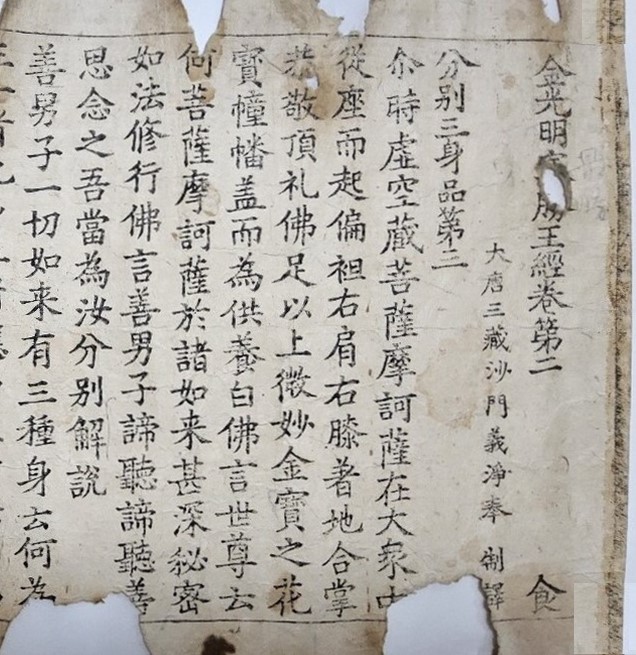 金光明勝王經卷第二 食
大唐三藏沙門義淨奉 制譯
分別三身品第三
尒時虛空藏菩薩摩訶薩在大衆中
從座而起偏袒右肩右膝著地合掌
恭敬頂礼佛足以上微妙金寶之花
寶幢幡盖而為供養白佛言世尊云
何菩薩摩訶薩於諸如来甚深秘密
如法修行佛言善男子諦聽諦聽善
思念之吾當為汝分別解說
善男子一切如来有三種身云何為